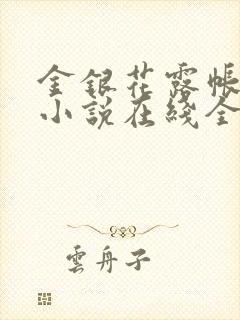 金銀花露帳
小說在綫全
雲舟子